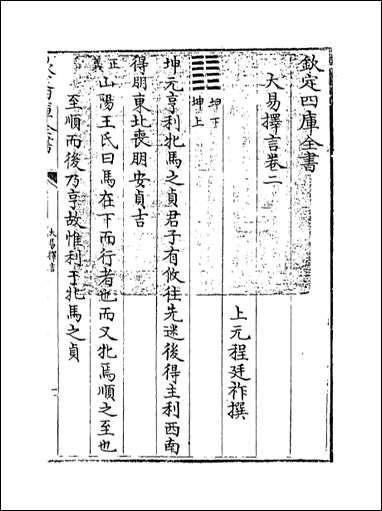 欽定四庫全書
大易擇言卷二
上元程廷祚撰
坤下
坤上
坤元亨利牝馬之貞君子有攸往先迷後得主利西南
得朋東北喪朋安貞吉
正義
山陽王氏曰馬在下而行者也而又牝焉順之至也
至順而後乃亨故惟利于牝馬之貞
大易擇言